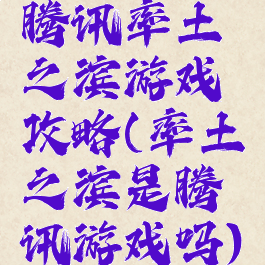 腾讯率土
之滨游戏
攻略(率土
之滨是腾
讯游戏吗)